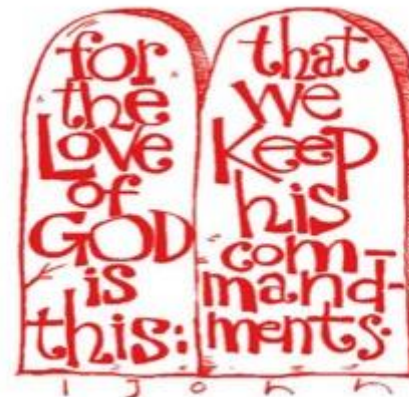 for
the
Love
of
GOD
is
this:
that
we
Keep
his
com-
mand-
ments.
1 John